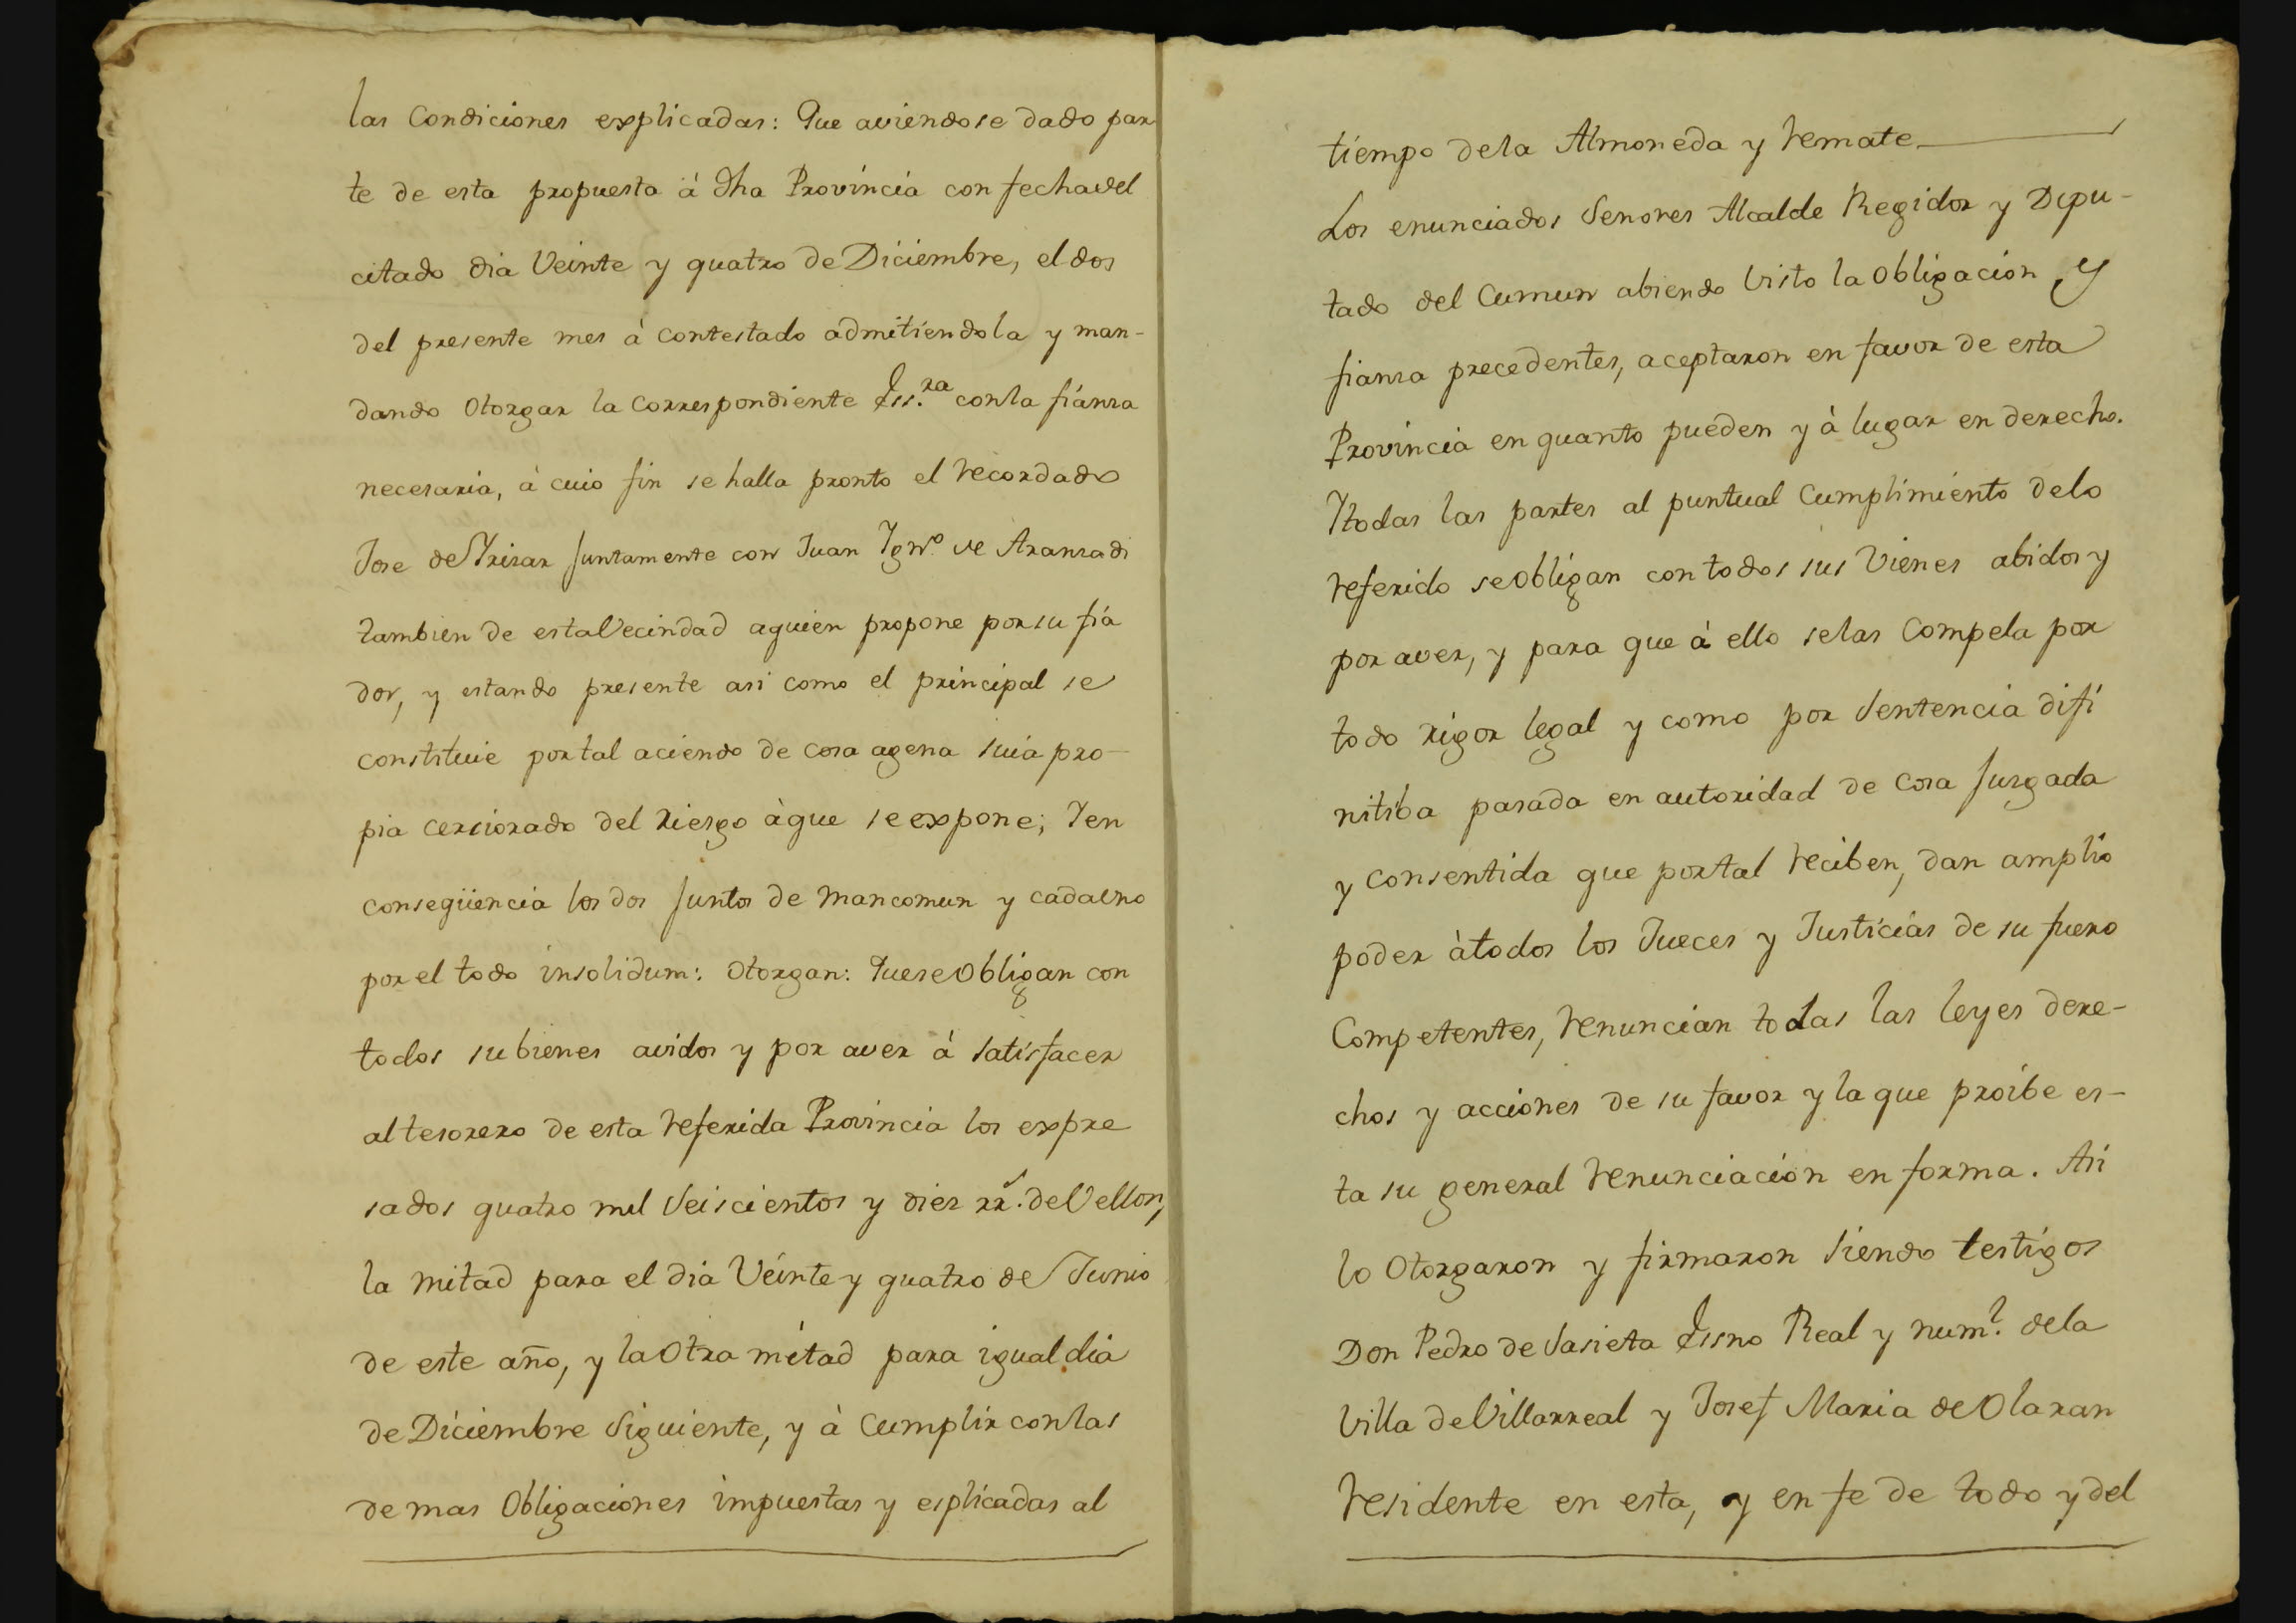 las Condiciones explicadas: Que aviendose dado par
te de esta propuesta à dha Provincia con fecha del
citado dia Veinte y quatro de Diciembre, el dos
del presente mes à contestado admitiendola y man-
dando Otorgar la Correspondiente Ess.ra con la fianza
necesaria, à cuio fin se halla pronto el recordado
Jose de Yrizar Juntamente con Juan Ygn.o de Aranzadi
tambien de esta Vecindad a quien propone por su fia
dor, y estando presente asi como el principal se
constituie por tal aciendo de cosa agena suia pro-
pia cerciorado del Riesgo à que se expone; Y en
conseqüencia los dos Juntos de mancomun y cada uno
por el todo insolidum: Otorgan: Que se Obligan con
todos su bienes avidos y por aver à satisfacer
al tesorero de esta referida Provincia los expre
sados quatro mil Seiscientos y diez rr.s de Vellon,
la mitad para el dia Veinte y quatro de Junio
de este año, y la Otra mitad para igual dia
de Diciembre Siguiente, y à Cumplir con las
de mas Obligaciones impuestas y esplicadas al
tiempo de la Almoneda y remate
Los enunciados Senores Alcalde Regidor y Dipu-
tado del Cumun abiendo Visto la Obligacion y
fianza precedentes, aceptaron en favor de esta
Provincia en quanto pueden y à lugar en derecho.
Y todas las partes al puntual Cumplimiento de lo
referido se Obligan con todos sus Vienes abidos y
por aver, y para que à ello se las Compela por
todo rigor legal y como por Sentencia difi
nitiba pasada en autoridad de Cosa Juzgada
y consentida que por tal reciben, dan amplio
poder à todos los Jueces y Justicias de su fuero
Competentes, renuncian todas las leyes dere-
chos y acciones de su favor y la que proibe es-
ta su general renunciacion en forma. Asi
lo Otorgaron y firmaron Siendo testigos
Don Pedro de Sasieta Essno Real y num.l de la
Villa de Villarreal y Josef Maria de Olaran
residente en esta, y en fe de todo y del